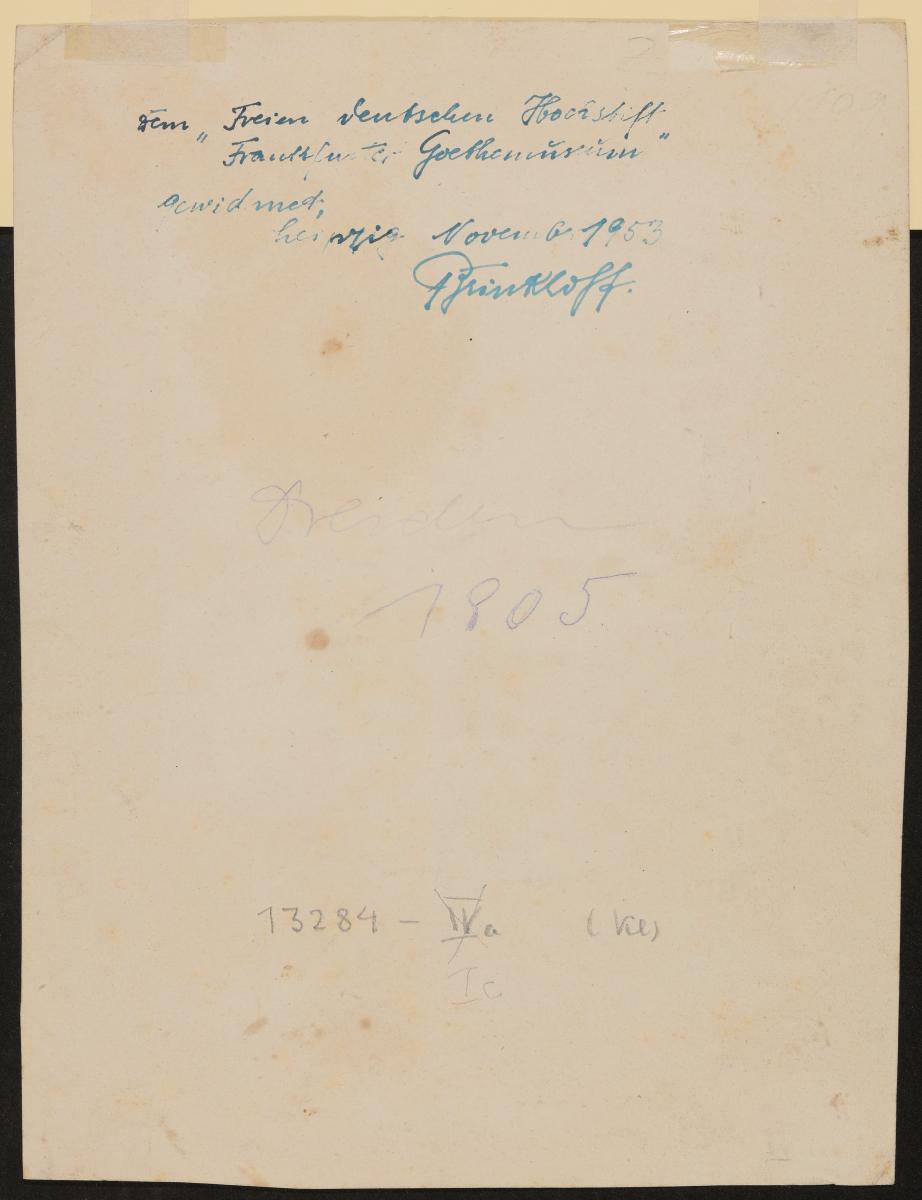 dem „Freien deutschen Hochstift
Frankfurter Goethemuseum"
gewidmet,
Leipzig November 1953
Brinkhoff.
Dresden
1805
13284 - IVa (Kl)
Ic